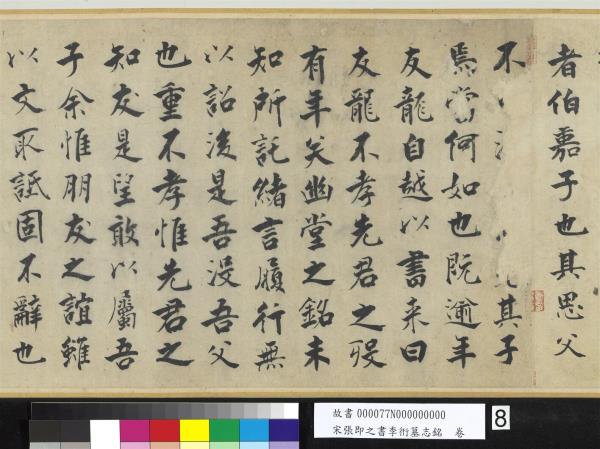 者伯嘉子也其思父
不其子
焉當何如也既逾年
友龍自越以書来曰
友龍不孝先君之歿
有年矣幽堂之銘未
知所託緒言履行無
以詔後是吾没吾父
也重不孝惟先君之
知友是望敢以屬吾
子余惟朋友之誼雖
以文取詆固不辭也
故書 000077N000000000
宋張即之書李衎墓志銘 卷
8